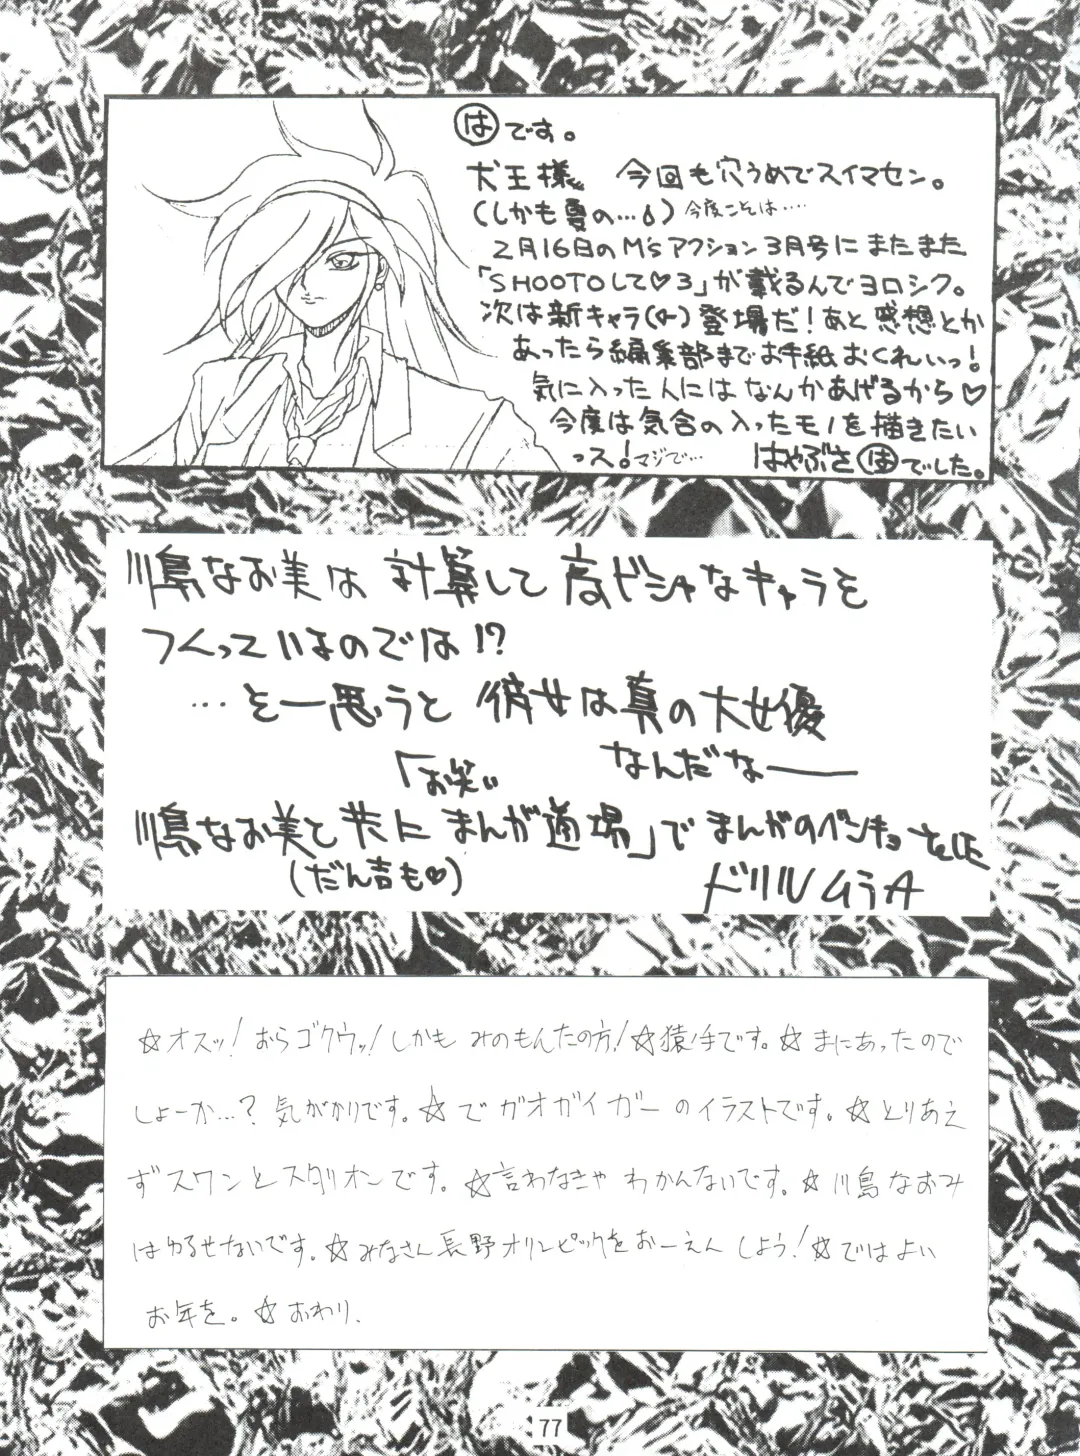 はです。
犬王様 今回も穴うめでスイマセン。
(しかも夏の…) 今度こそは‥‥
2月16日のM'sアクション3月号にまたまた
「SHOOTOして♡3」が載るんでヨロシク。
次は新キャラ(♀)登場だ!あと感想とか
あったら編集部までお手紙おくれいっ!
気に入った人にはなんかあげるから♡
今度は気合の入ったモノを描きたい
っス!マジで… はやぶさはでした。
川島なお美は計算して高ビシャなキャラを
つくっているのでは!?
…そー思うと彼女は真の大女優
なんだなー
「お笑い
川島なお美と共にまんが道場」でまんがのベンキョーをした
(だん吉も♡)
ドリルムラA
☆オスッ!おらゴクウッ!しかもみのもんたの方!☆猿手です。☆まにあったので
しょーか…?気がかりです。☆でガオガイガーのイラストです。☆とりあえ
ずスワンとスタリオンです。☆言わなきゃわかんないです。☆川島なおみ
はゆるせないです。☆みなさん長野オリンピックをおーえんしよう!☆ではよい
お年を。☆おわり.
77